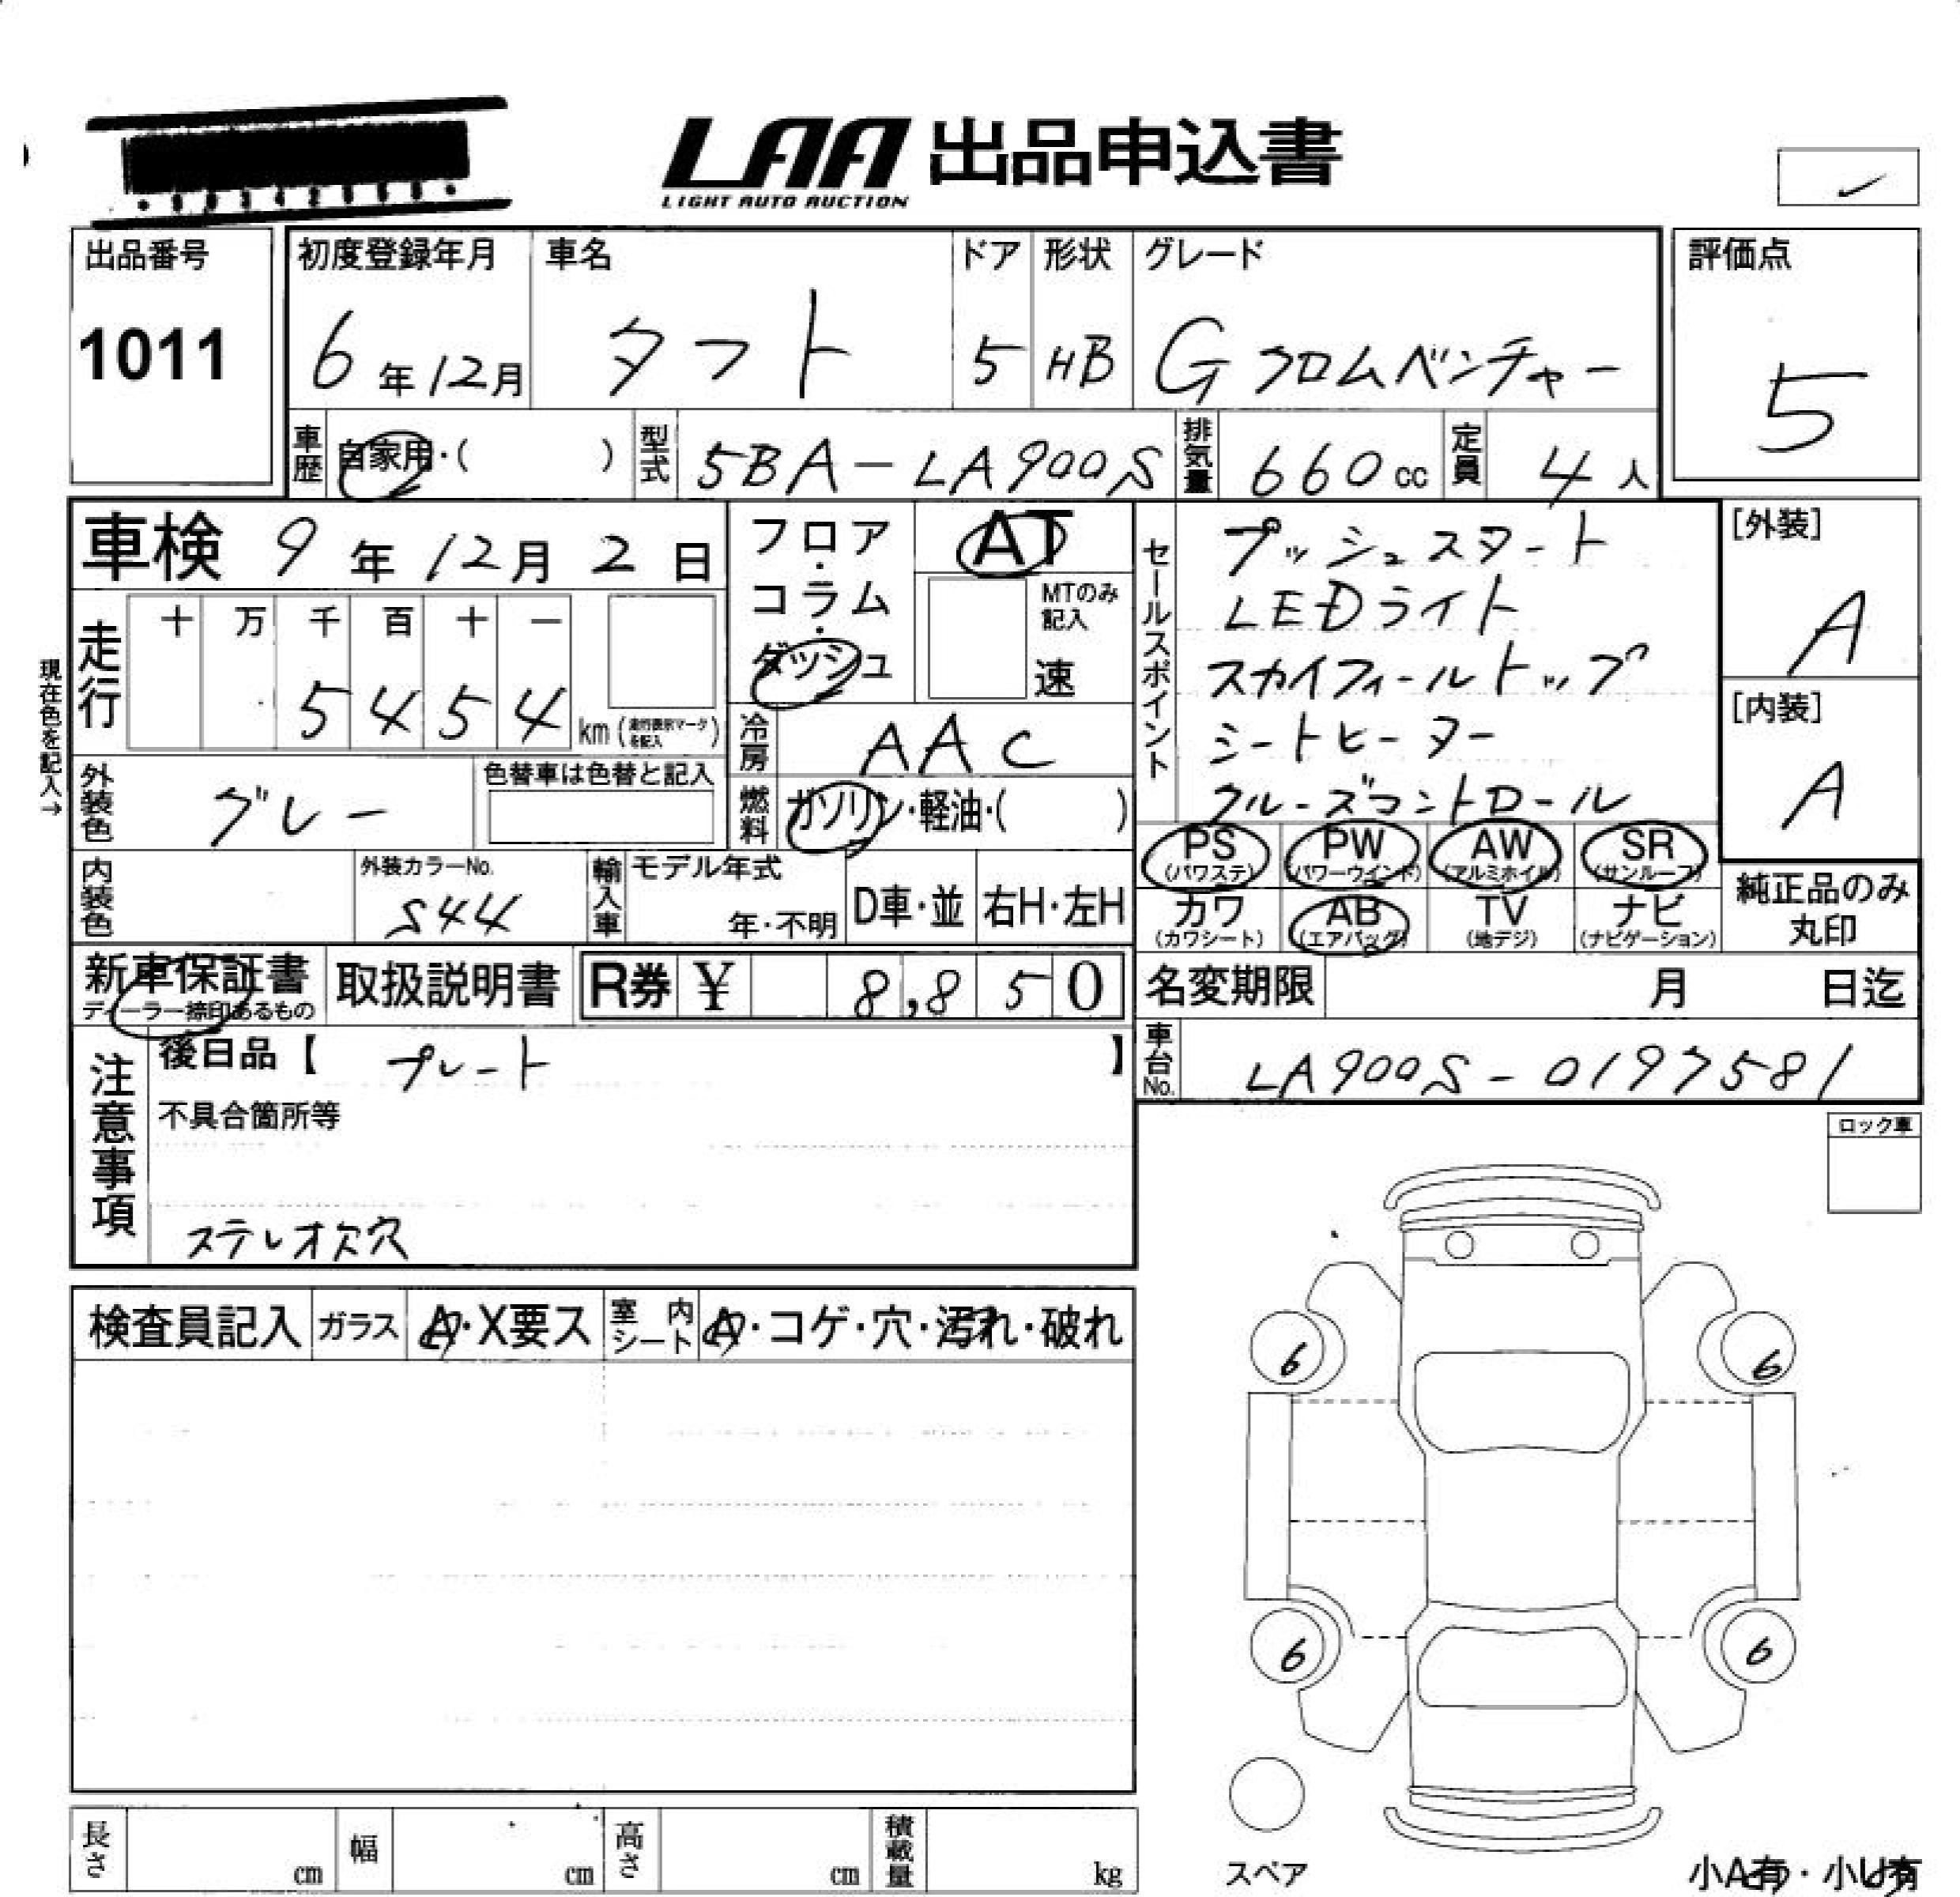 LAA 出品申込書
LIGHT AUTO AUCTION
出品番号
1011
初度登録年月
6年12月
車名
タフト
ドア
5
形状
HB
グレード
G クロムベンチャー
評価点
5
車歴
自家用・( )
型式
5BA-LA900S
排気量
660cc
定員
4人
車検 9年12月2日
フロア・コラム・ダッシュ
AT
MTのみ記入
速
セールスポイント
プッシュスタート
LEDライト
スカイフィールトップ
シートヒーター
クルーズコントロール
[外装]
A
[内装]
A
現在色を記入→
走行
十 万 千 百 十 一
5 4 5 4 km (走行表示マークを記入)
冷房
AAC
燃料
ガソリン・軽油・( )
外装色
グレー
色替車は色替と記入
内装色
外装カラーNo.
S44
輸入車
モデル年式
年・不明
D車・並
右H・左H
PS (パワステ)
PW (パワーウインド)
AW (アルミホイル)
SR (サンルーフ)
カワ (カワシート)
AB (エアバッグ)
TV (地デジ)
ナビ (ナビゲーション)
純正品のみ丸印
新車保証書
ディーラー捺印あるもの
取扱説明書
R券 ¥ 8,850
名変期限 月 日迄
車台No.
LA900S-0197581
注意事項
後日品【 プレート 】
不具合箇所等
ステレオ欠穴
ロック車
検査員記入
ガラス
A・X要ス
室内シート
A・コゲ・穴・汚れ・破れ
6
6
6
6
スペア
長さ cm
幅 cm
高さ cm
積載量 kg
小A有・小U有